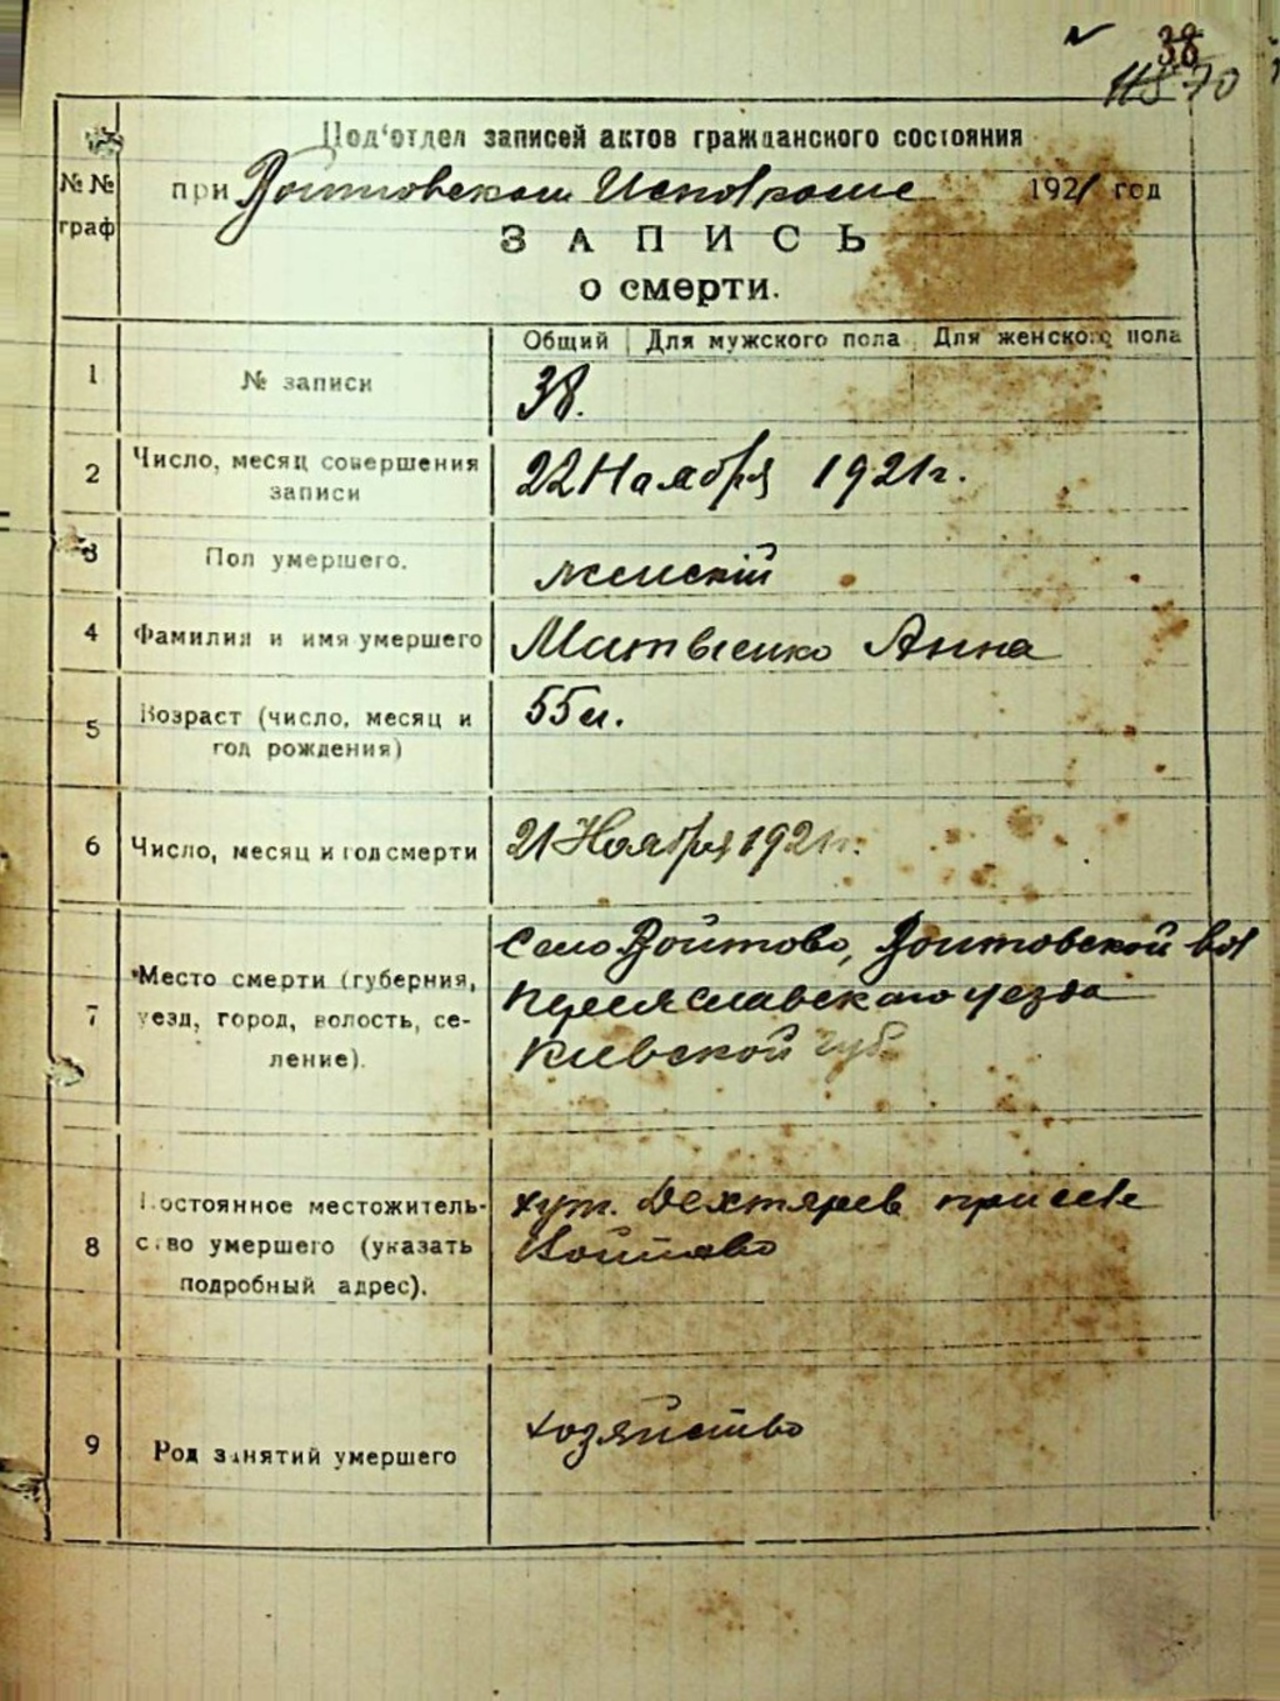 38
70
Под‘отдел записей актов гражданского состояния
№ №
граф
при Войтовском Исполкоме 1921 год
ЗАПИСЬ
о смерти.
Общий Для мужского пола Для женского пола
1 № записи 38.
2 Число, месяц совершения записи 22 Ноября 1921 г.
3 Пол умершего. женскій
4 Фамилия и имя умершего Матвіенко Анна
5 Возраст (число, месяц и год рождения) 55 л.
6 Число, месяц и год смерти 21 Ноября 1921 г.
7 Место смерти (губерния, уезд, город, волость, се-
ление).
Село Войтово, Войтовской вол
Переяславскаго уезда
Киевской губ.
8 Постоянное местожитель-
ство умершего (указать
подробный адрес).
хут. Дехтярев при селе
Войтово
9 Род занятий умершего хозяйство